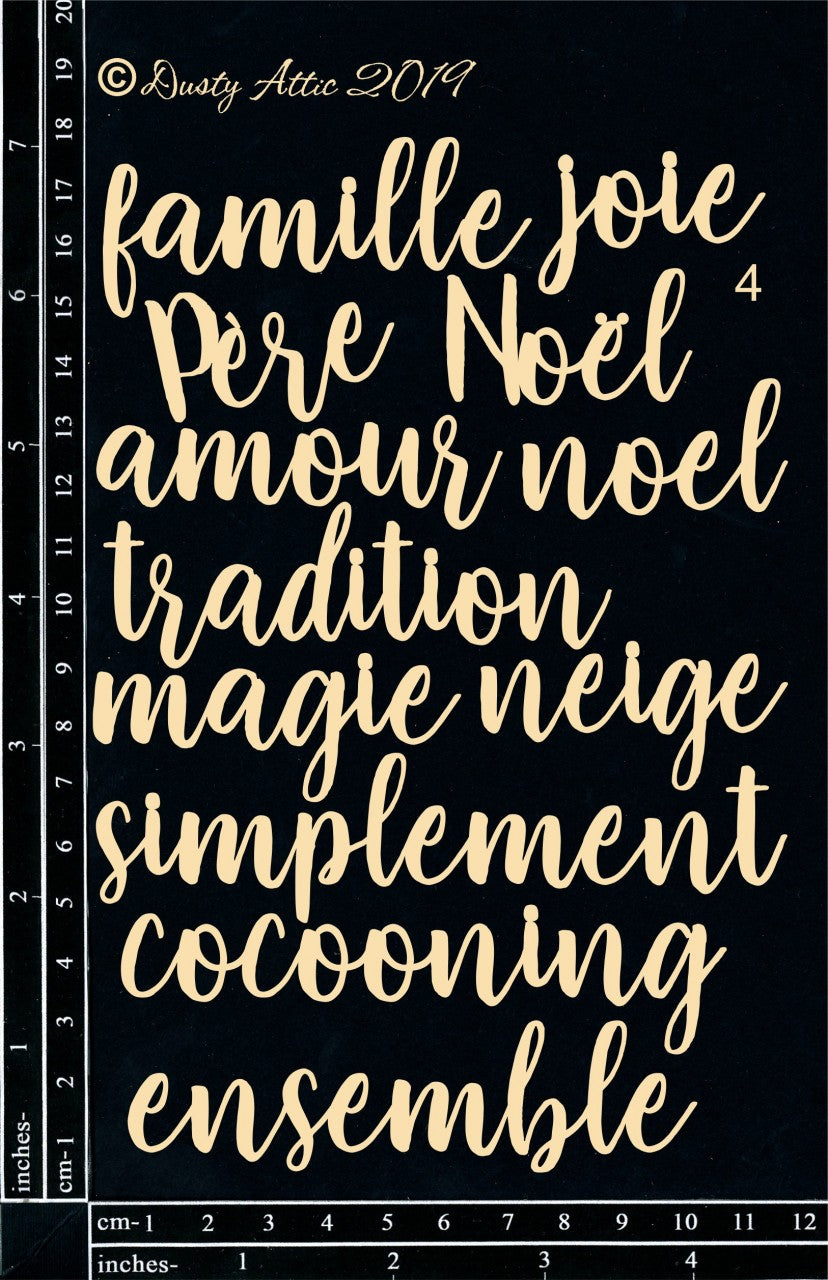 © Dusty Attic 2019
famille joie
4
Père Noël
amour noel
tradition
magie neige
simplement
cocooning
ensemble
inches- 1 2 3 4 5 6 7
cm-1 2 3 4 5 6 7 8 9 10 11 12 13 14 15 16 17 18 19 20
cm-1 2 3 4 5 6 7 8 9 10 11 12
inches- 1 2 3 4